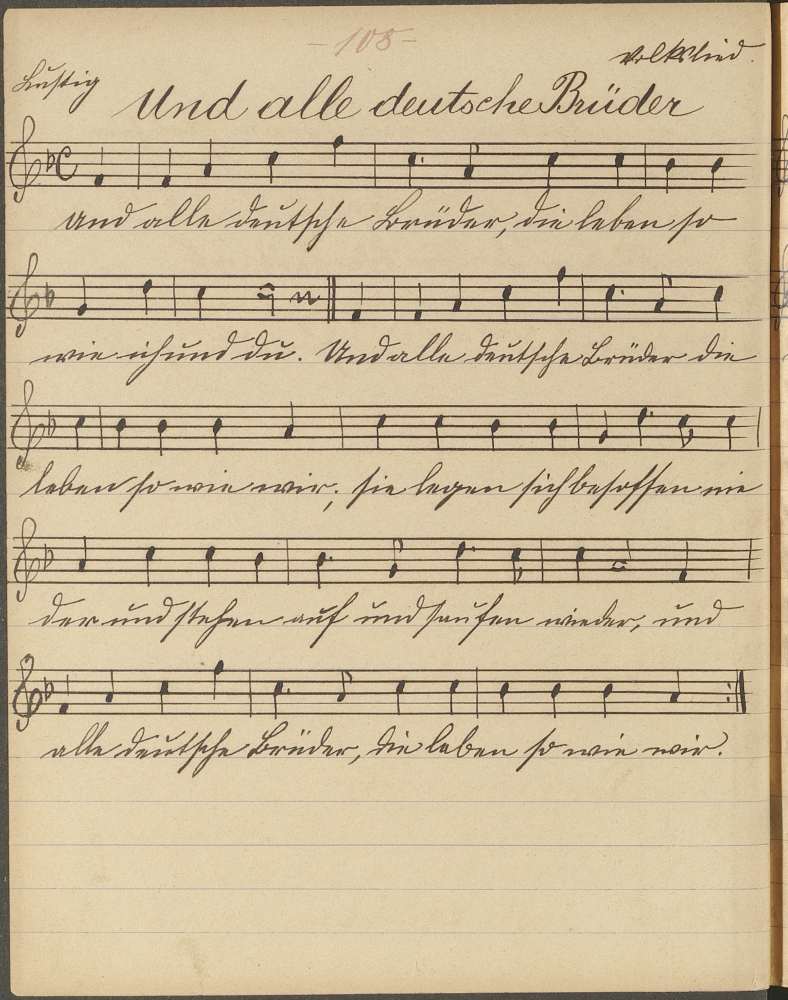 - 108 -
Volkslied.
Lustig
Und alle deutsche Brüder
Und alle deutsche Brüder, die leben so
wie ich und du. Und alle deutsche Brüder die
leben so wie wir; sie legen sich besoffen nie
der und stehen auf und saufen wieder, und
alle deutsche Brüder, die leben so wie wir.